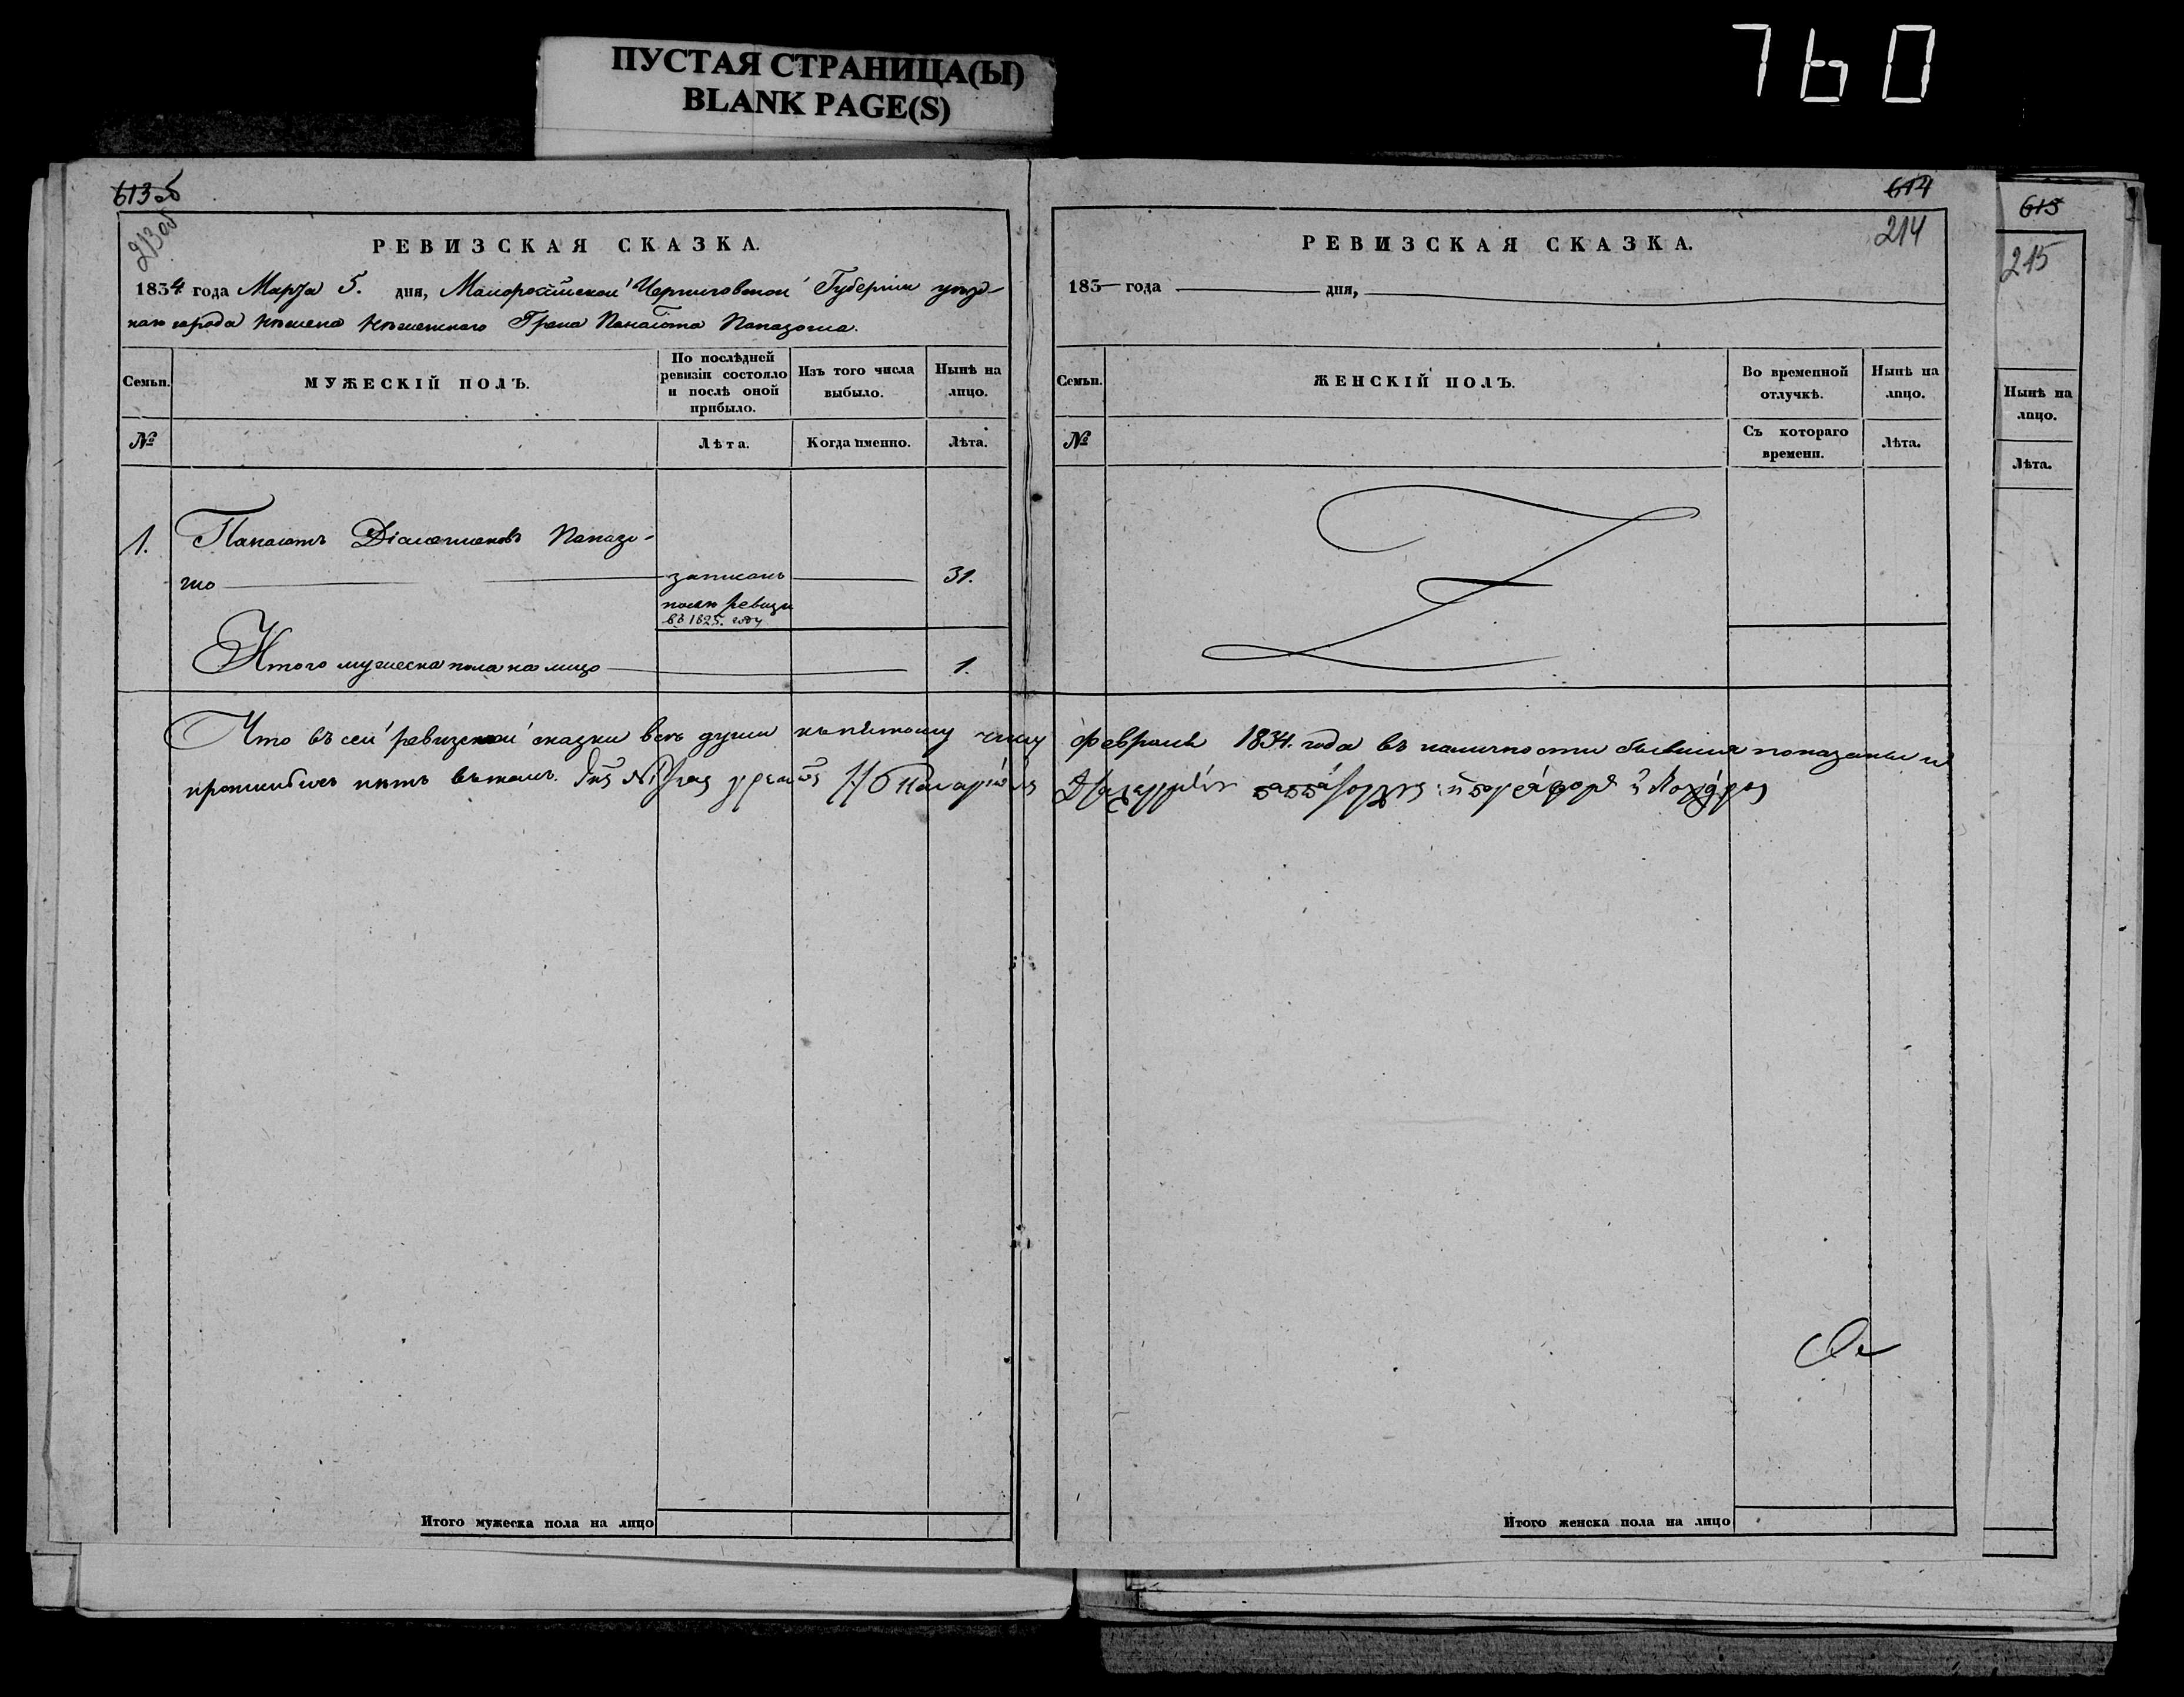 ПУСТАЯ СТРАНИЦА(Ы)
BLANK PAGE(S)
760
613 об
213 об
РЕВИЗСКАЯ СКАЗКА.
1834 года Марта 5. дня, Малороссійской Черниговской Губерніи уѣзд-
наго города Нѣжина Нѣжинскаго Грека Панаіота Папазогла.
Семьи.
МУЖЕСКІЙ ПОЛЪ.
По послѣдней ревизіи состояло и послѣ оной прибыло.
Изъ того числа выбыло.
Нынѣ на лицо.
№
Лѣта.
Когда именно.
Лѣта.
1. Панаіотъ Папазо-
гло записанъ 31.
послѣ ревизіи
въ 1825. году
Итого мужеска пола на лицо 1.
614
214
РЕВИЗСКАЯ СКАЗКА.
183 года дня,
Семьи.
ЖЕНСКІЙ ПОЛЪ.
Во временной отлучкѣ.
Нынѣ на лицо.
№
Съ котораго времени.
Лѣта.
Что въ сей ревизской сказки всѣ души къ пятому числу февраля 1834. года въ наличности бывшия показаны и
прописныхъ нѣтъ въ томъ.
Итого мужеска пола на лицо
Итого женска пола на лицо
615
215
Нынѣ на лицо.
Лѣта.